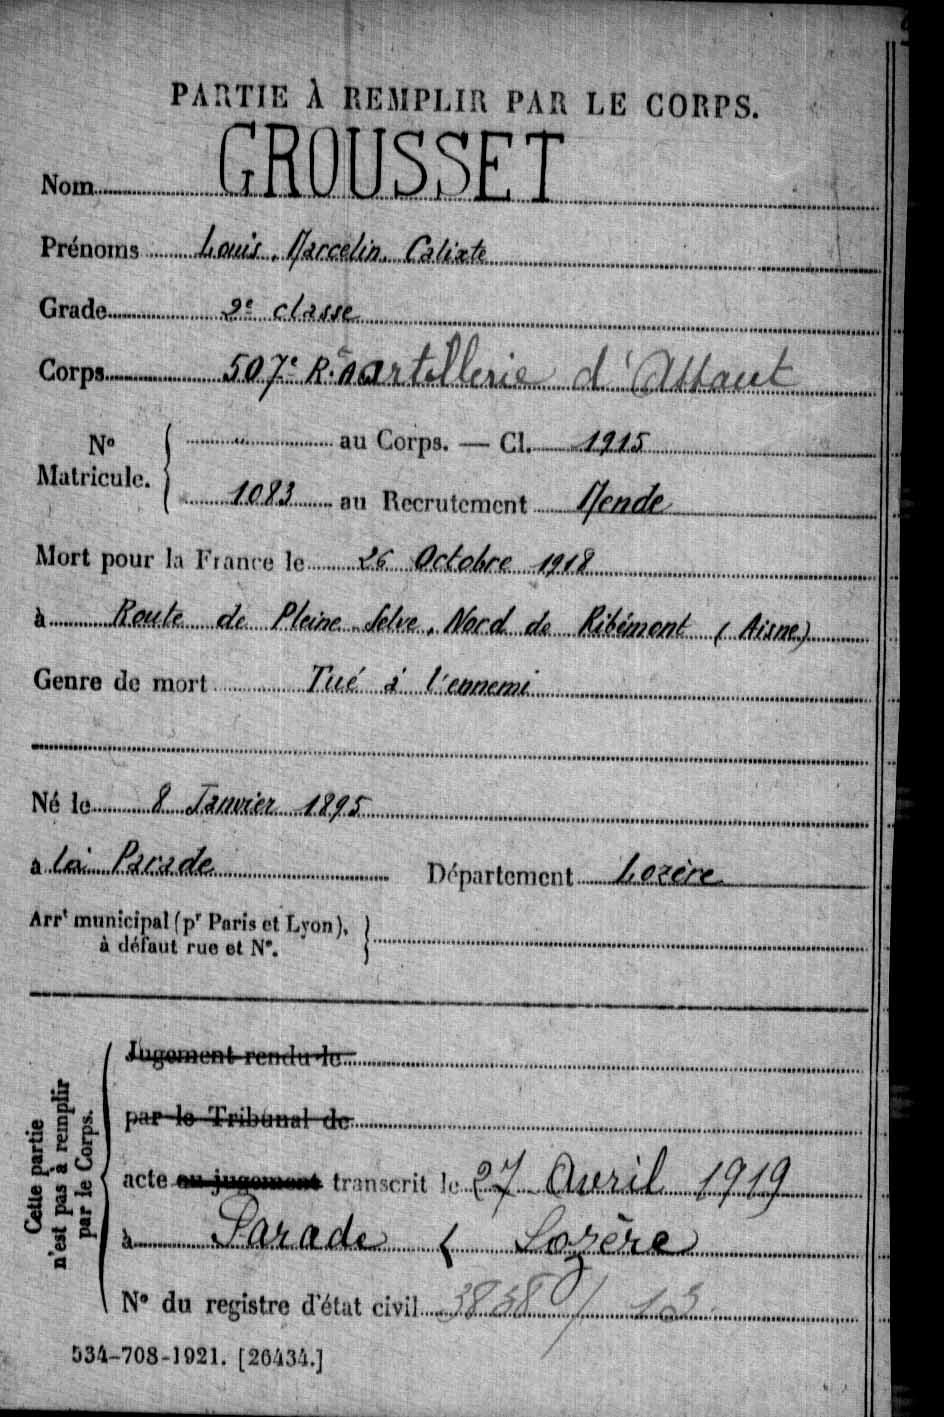 PARTIE À REMPLIR PAR LE CORPS.
Nom GROUSSET
Prénoms Louis, Marcelin, Calixte
Grade 2e classe
Corps 507e R. artillerie d'Assaut
No Matricule. " au Corps. — Cl. 1915
1083 au Recrutement Mende
Mort pour la France le 26 Octobre 1918
à Route de Pleine Selve, Nord de Ribémont (Aisne)
Genre de mort Tué à l'ennemi
Né le 8 Janvier 1895
à La Parade Département Lozère
Arrt municipal (pr Paris et Lyon), à défaut rue et No.
Cette partie n'est pas à remplir par le Corps.
Jugement rendu le
par le Tribunal de
acte ou jugement transcrit le 27 Avril 1919
à Parade ( Lozère
No du registre d'état civil 3838 / 13
534-708-1921. [26434.]